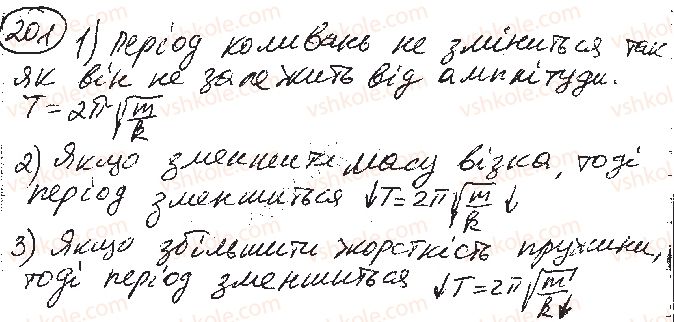 201 1) Період коливань не зміниться так
як він не залежить від амплітуди.
T = 2π√m/k
2) Якщо зменшити масу візка, тоді
період зменшиться ↓T = 2π√m/k ↓
3) Якщо збільшити жорсткість пружини,
тоді період зменшиться ↓T = 2π√m/k↓